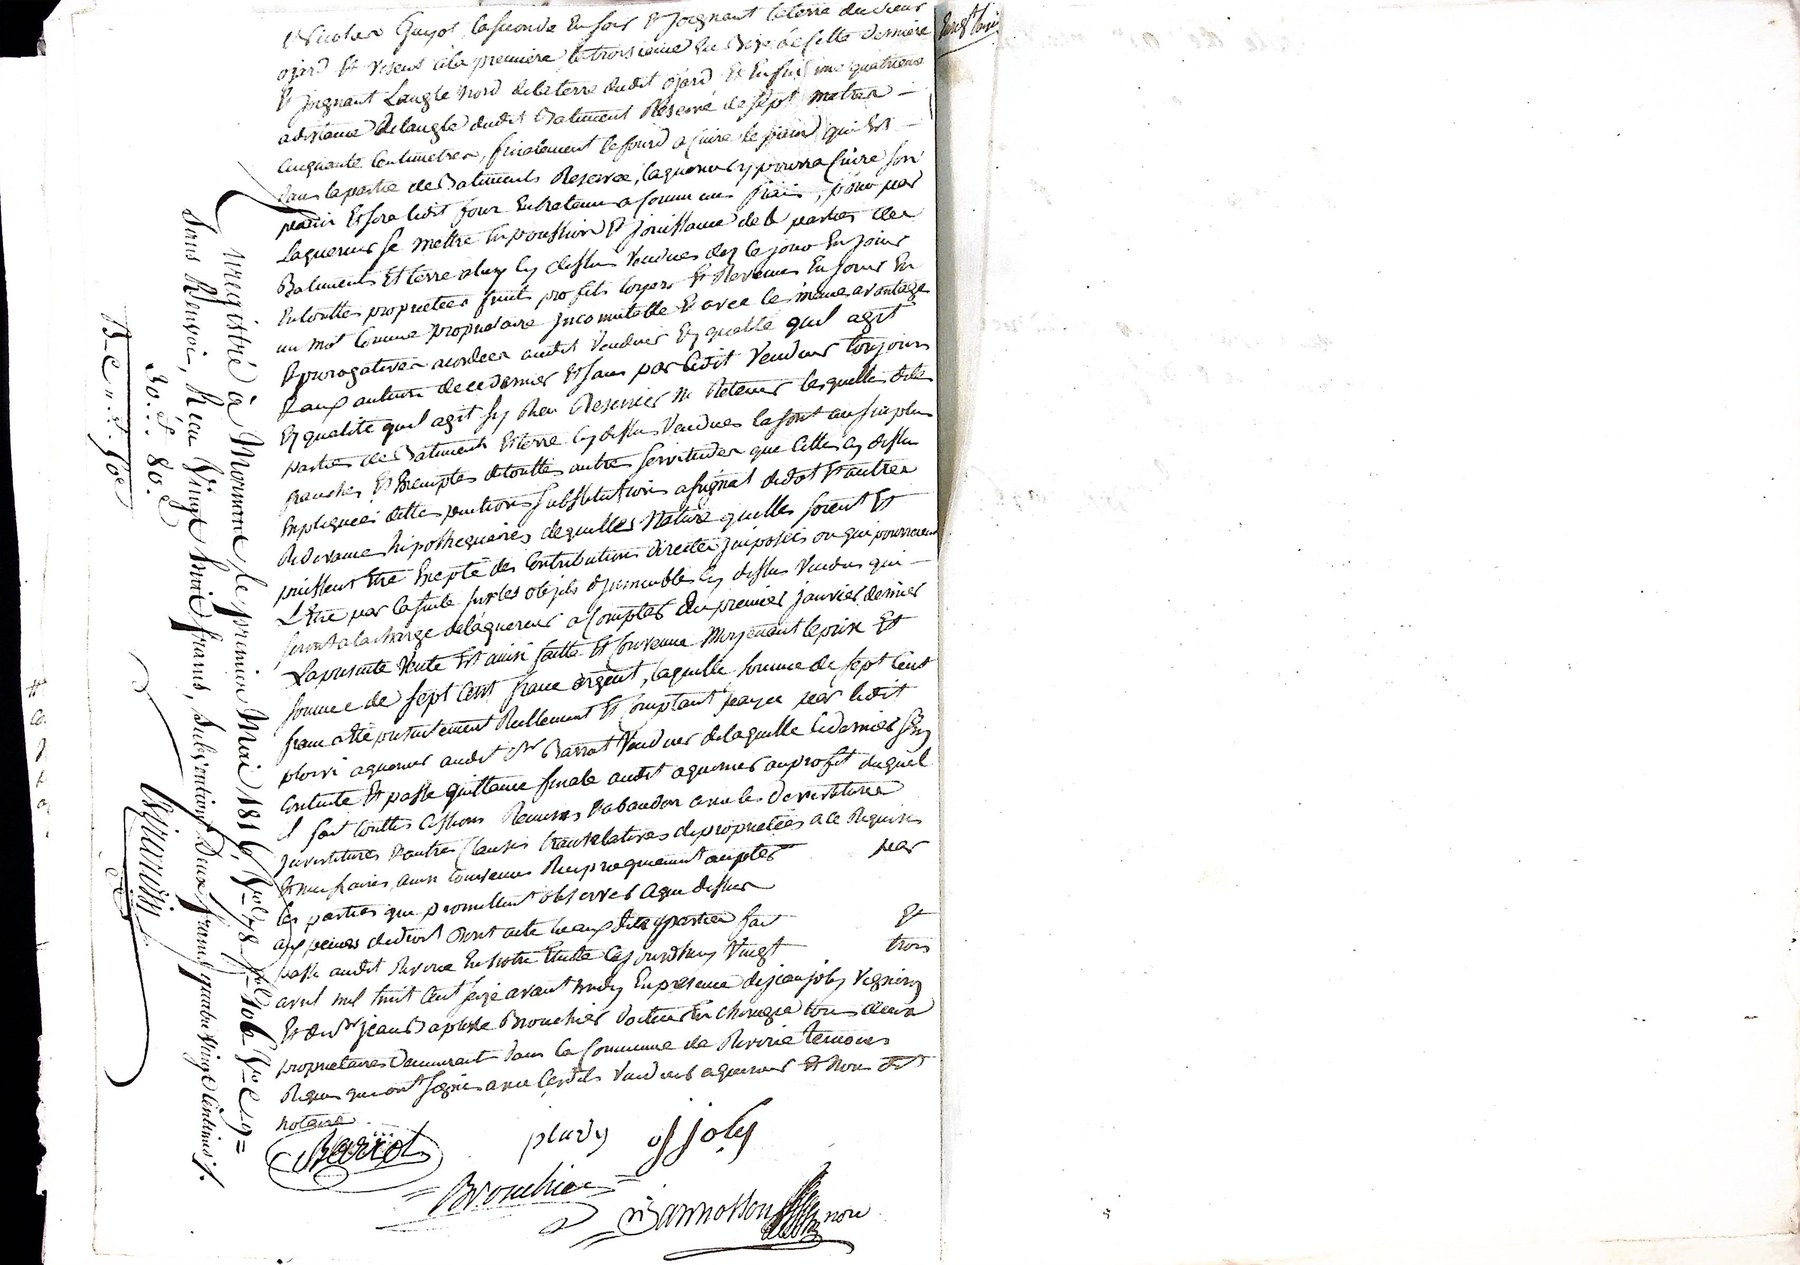 Nicolas Guyot, la seconde en soir et joignant la terre du sieur
ojard et visent à la première, la troisieme en bize de cette derniere
et joignant l'angle nord de la terre dudit ojard et enfin une quatrieme
a distance de l'angle dudit Batiment Reservé de sept metres
cinquante centimetres, finalement le fourd a cuire le pain qui est
dans la partie de Batiments Reservée, laquereur y pourra cuire son
pain et sera ledit four entretenu a communs frais, pour par
laquereur se mettre en possession et jouissance de la parties des
Batiments et terre a luy cy dessus vendues dez ce jour en jouir
en touttes proprietées fruits profits loyers et Revenus en jouir en
un mot comme proprietaire incomutable et avec les meme avantage
et prerogatives acordées audit vendeur en qualité quil agit
par ledit vendeur toujours
en qualité quil agit sy Rien Reserver ni Retenir lesquelles dites
parties de Batiments et terre cy dessus vendues la sont au surplus
franches et exemptes de touttes autres servitudes que celles cy dessus
expliquées dettes pentions substitutions assignat de dot et autres
Redevance hipothequaires de quelles Nature quelles soient et
puissent être Excepté des Contributions directes imposées ou qui pourroient
L'être par la suite sur les objets d'immeubles cy dessus vendus qui
seront a la charge de laquereur a compter du premier janvier dernier
La presente vente est ainsi faitte et convenue moyenant le prix et
somme de sept cent franc argent, laquelle somme de sept cent
franc a été presentement Reellement et comptant payée par ledit
plovi aquereur audit Sr Barriot vendeur de laquelle ce dernier sen
contente et passe quittance finale audit aquereur au profit duquel
il fait touttes cessions Remises d'abandon avec les devestitures
investitures et autres clauses translatives de proprietées a ce Requises
et necessaires ainsi convenu Reciproquement accepté par
les parties qui promettent observer a que dessus
aux peines de droit dont acte heu aux dites parties fait et
passé audit Riverie en notre Etude ce jourdhuy vingt trois
avril mil huit cent seize avant midy en presence de jean joly vigneron
et du Sr jean Baptiste Brouchier docteur en chirurgie tous deux
proprietaires demeurant dans la commune de Riverie temoins
Requis qui ont signés avec lesdits vendeur aquereur et Nous dit
notaire
Barriot pluvy jjoly
Brouchier
Bannosson nore
Enregistré à Mornant le premier Mai 1816, Vol. 78 fol. 106 Vo Ce 9=
Sans Renvoi, Reçu Vingt huit francs, Subvention Deux francs quatre vingt Centimes ./.
30. f. 80. c